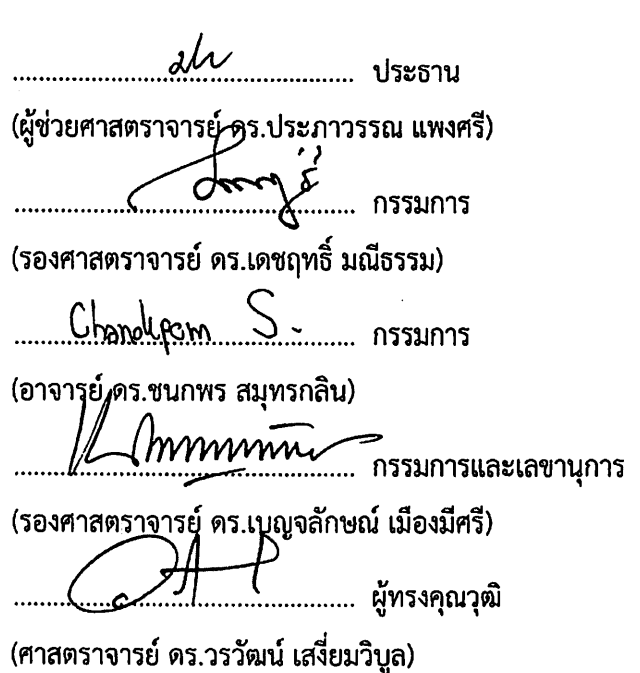 ประธาน
(ผู้ช่วยศาสตราจารย์ ดร.ประภาวรรณ แพงศรี)
กรรมการ
(รองศาสตราจารย์ ดร.เดชฤทธิ์ มณีธรรม)
Chanokporn S. กรรมการ
(อาจารย์ ดร.ชนกพร สมุทรกลิน)
กรรมการและเลขานุการ
(รองศาสตราจารย์ ดร.เบญจลักษณ์ เมืองมีศรี)
ผู้ทรงคุณวุฒิ
(ศาสตราจารย์ ดร.วรวัฒน์ เสงี่ยมวิบูล)